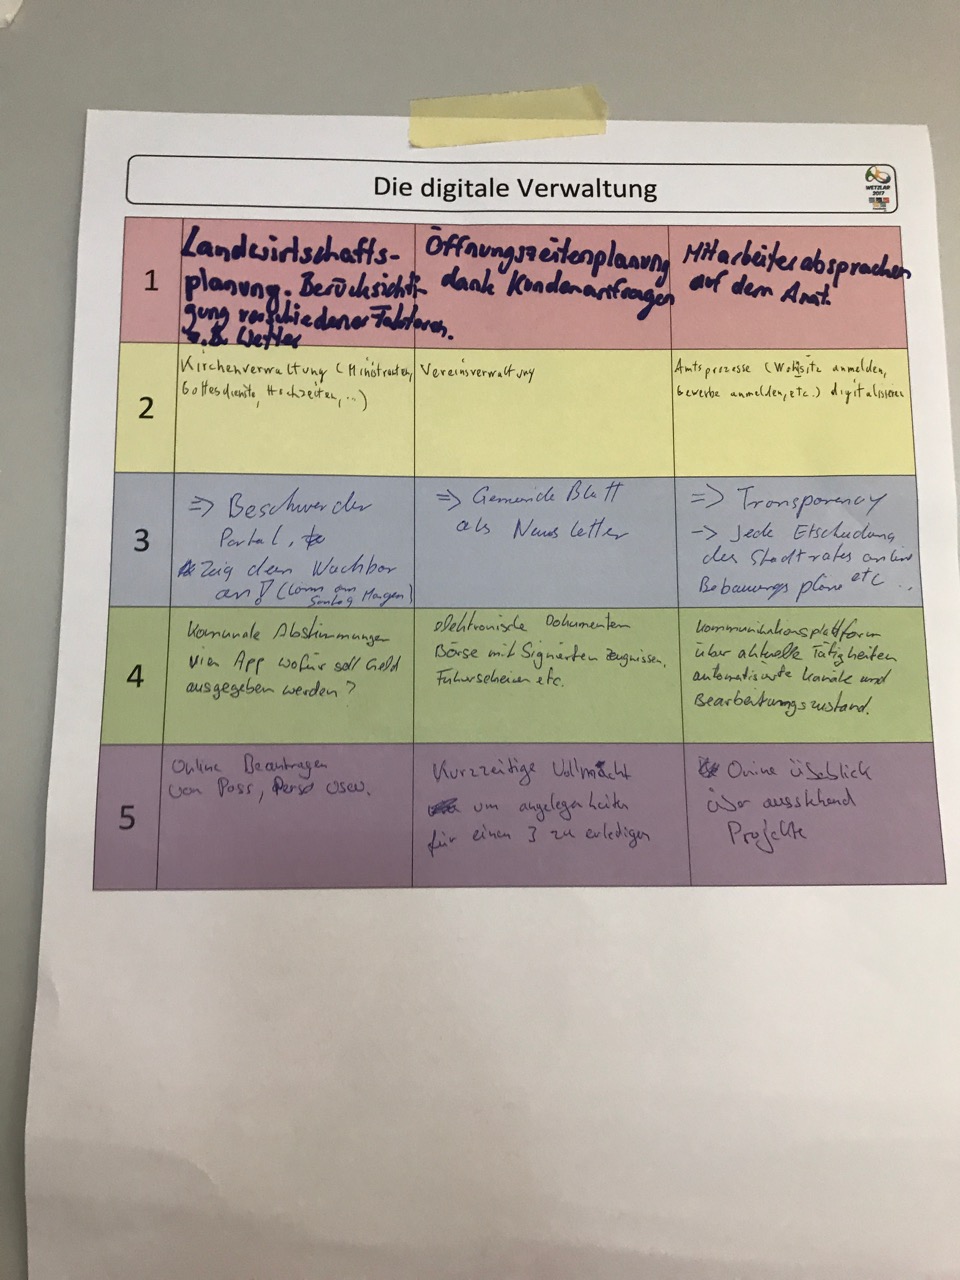 Die digitale Verwaltung
WETZLAR
2017
1
Landwirtschafts-
planung. Berücksichti-
gung verschiedener Faktoren.
z.B. Wetter
Öffnungszeitenplanung
dank Kundenanfragen
Mitarbeiterabsprachen
auf dem Amt.
2
Kirchenverwaltung (Ministranten,
Gottesdienste, Hochzeiten, ...)
Vereinsverwaltung
Amtsprozesse (Wohnsitz anmelden,
Gewerbe anmelden, etc.) digitalisieren
3
=> Beschwerder
Portal,
Zeig dein Nachbar
an! (Lärm am
Sontag Morgen)
=> Gemeinde Blatt
als News letter
=> Transparency
-> Jede Etscheidung
des Stadtrates online
Bebauungs pläne etc ..
4
Komunale Abstimmungen
vien App wofür soll Geld
ausgegeben werden?
elektronische Dokumenten
Börse mit Signierten Zeugnissen,
Führerscheinen etc.
Kommunikationsplattform
über aktuelle Tätigkeiten
automatisierte Kanäle und
Bearbeitungszustand.
5
Online Beantragen
von Pass, Perso usw.
Kurzzeitige Vollmacht
um angelegenheiten
für einen 3 zu erledigen
Onine übeblick
über ausstehend
Projekte